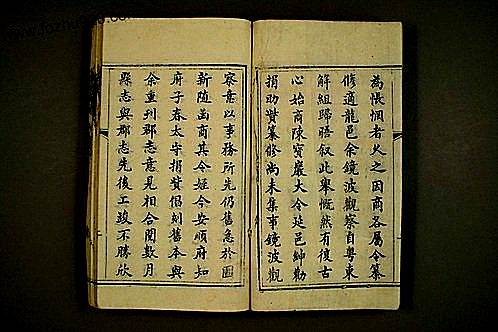 為悵惘者久之因商各屬令纂
修適龍邑余鏡波觀察自粵東
解組歸晤叙此舉慨然有復古
心始商陳寶巖大令延邑紳勸
捐助貲纂修尚未集事鏡波觀
察意以事務所先仍舊急於圖
新随函商其令姪令安順府知
府子春太守捐貲倡刻舊本與
余重刊郡志意見相合閱數月
縣志與郡志先後工竣不勝欣